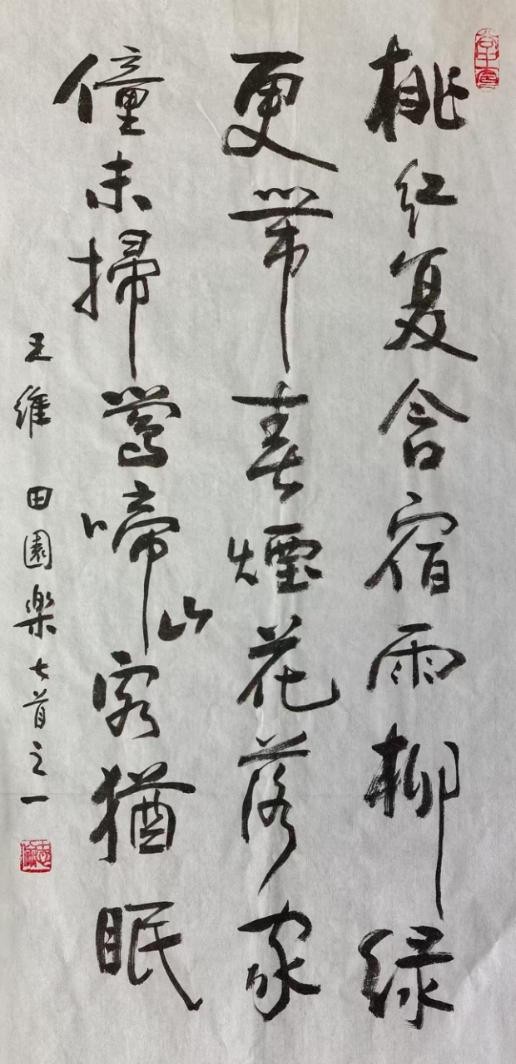 桃红复含宿雨柳绿
更带春煙花落家
僮未掃莺啼山客猶眠
王維 田園樂七首之一